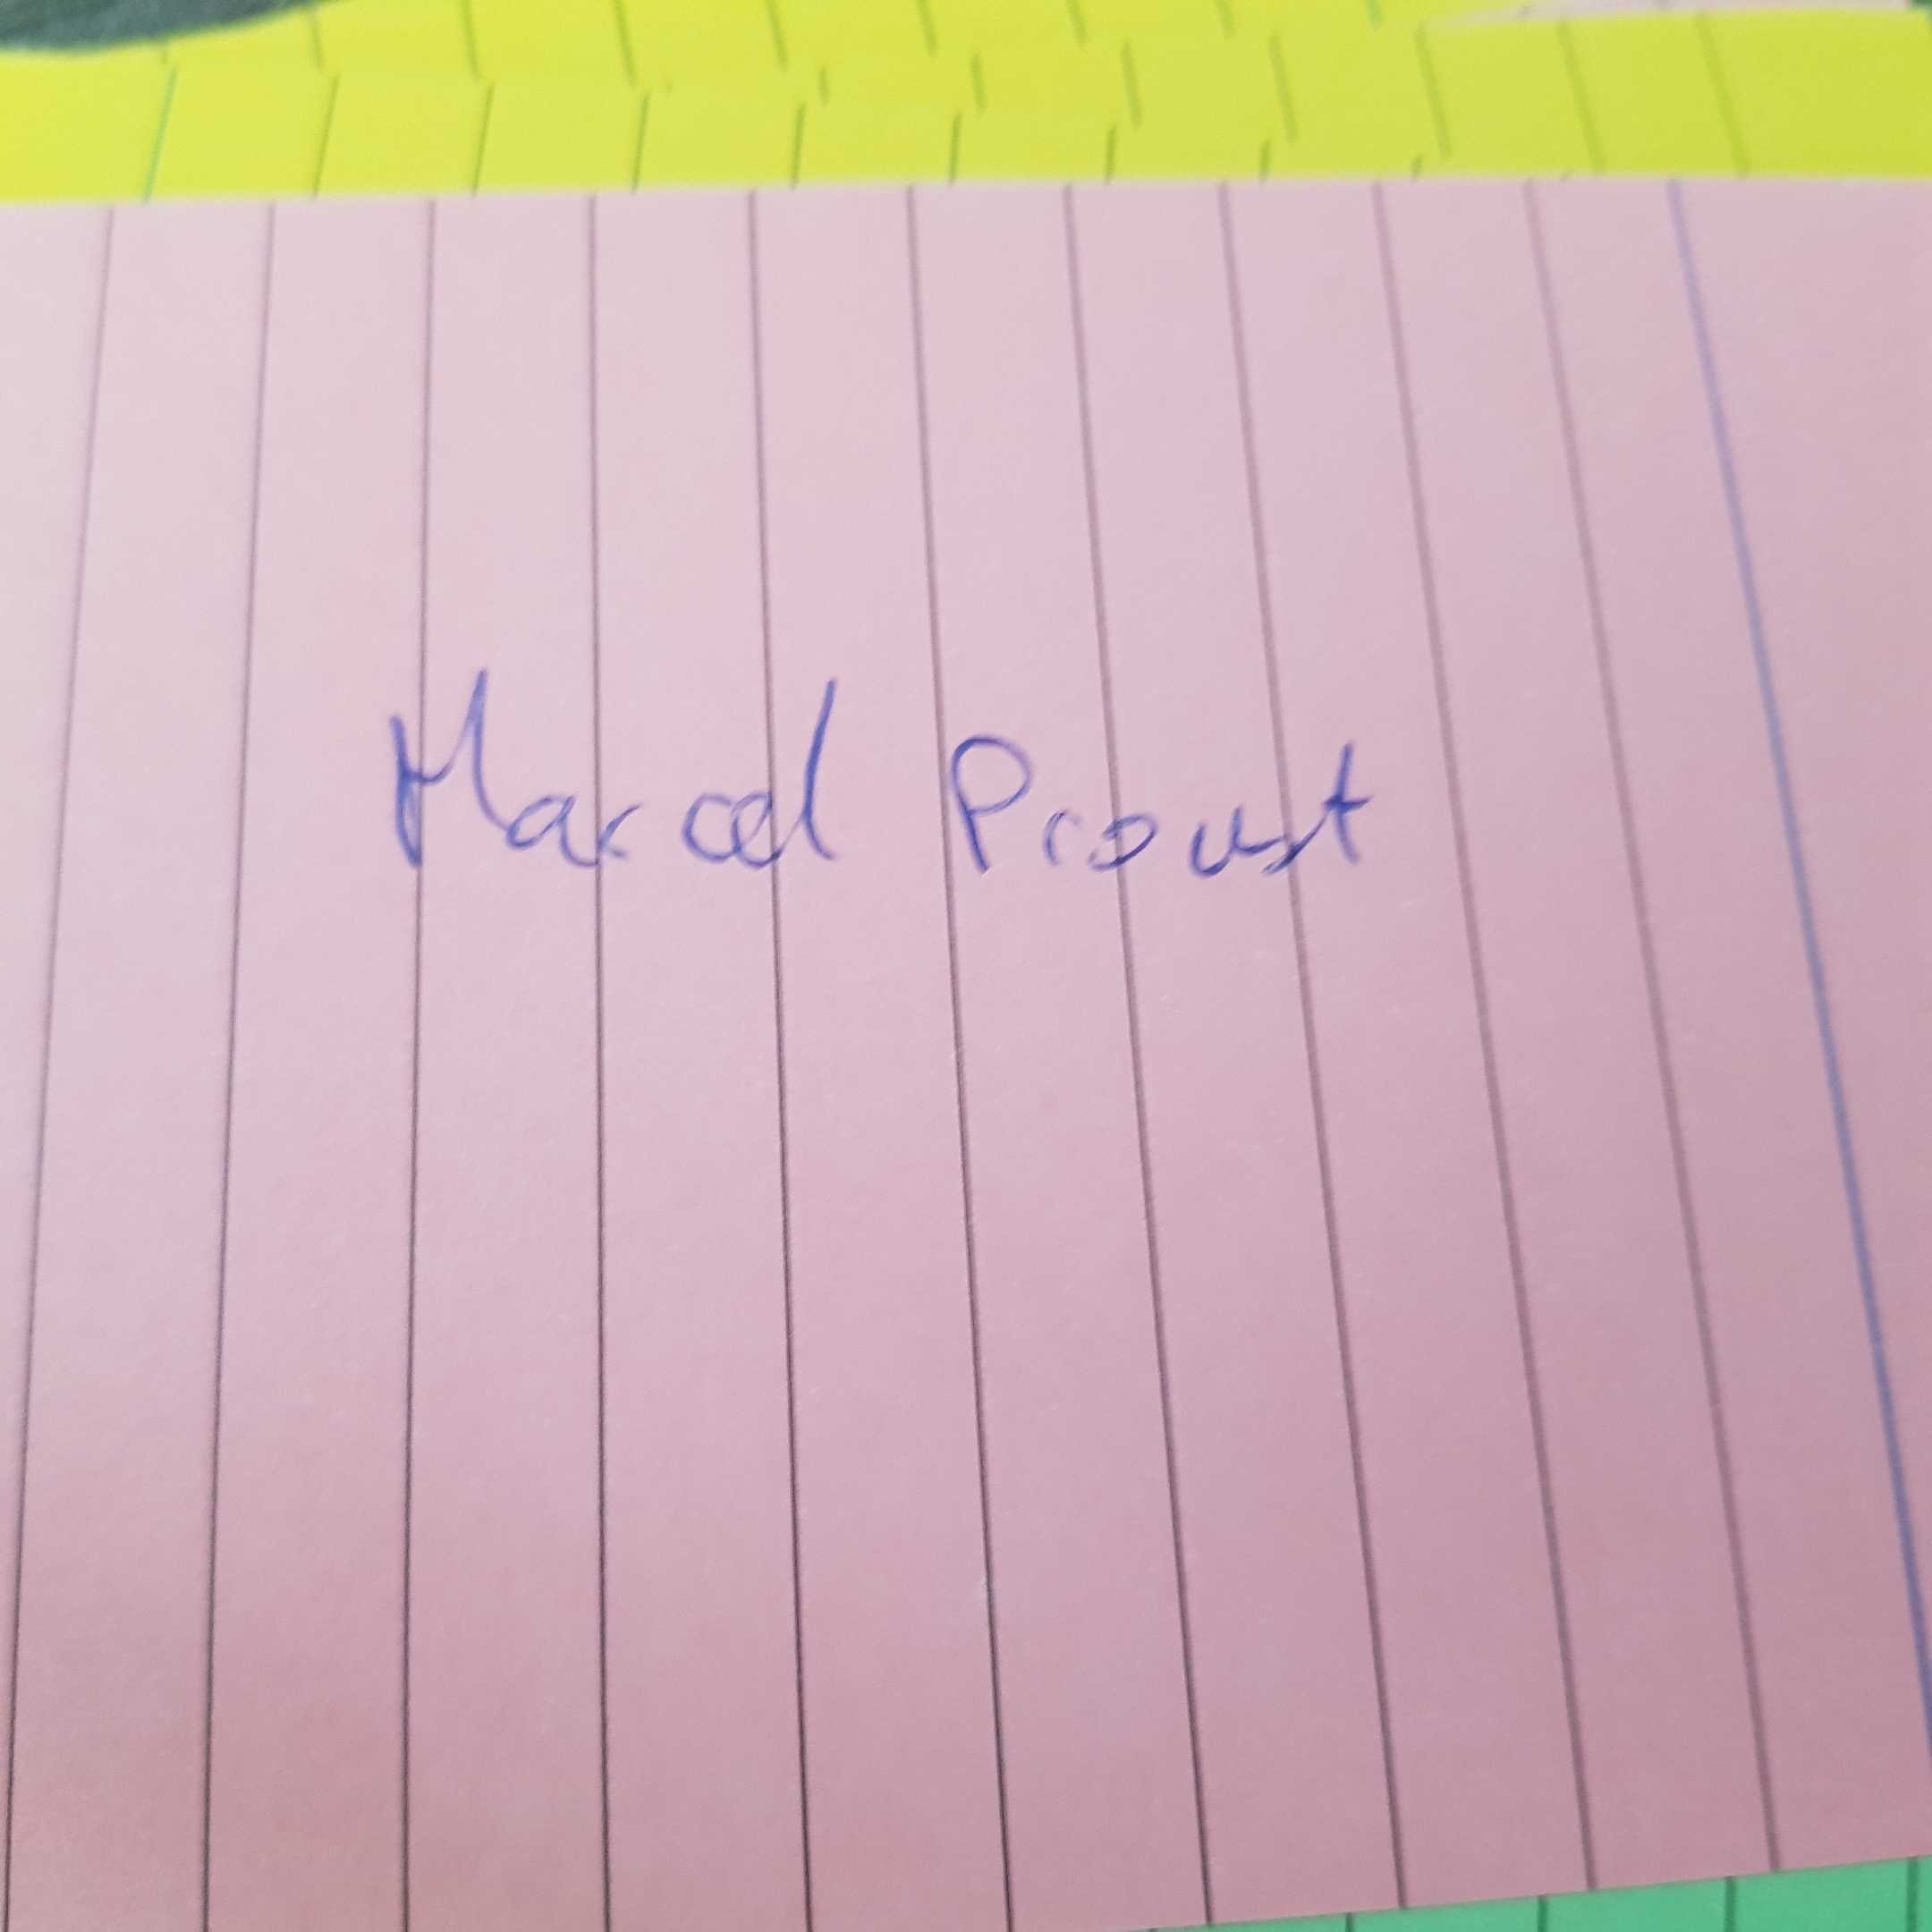 Marcel Proust